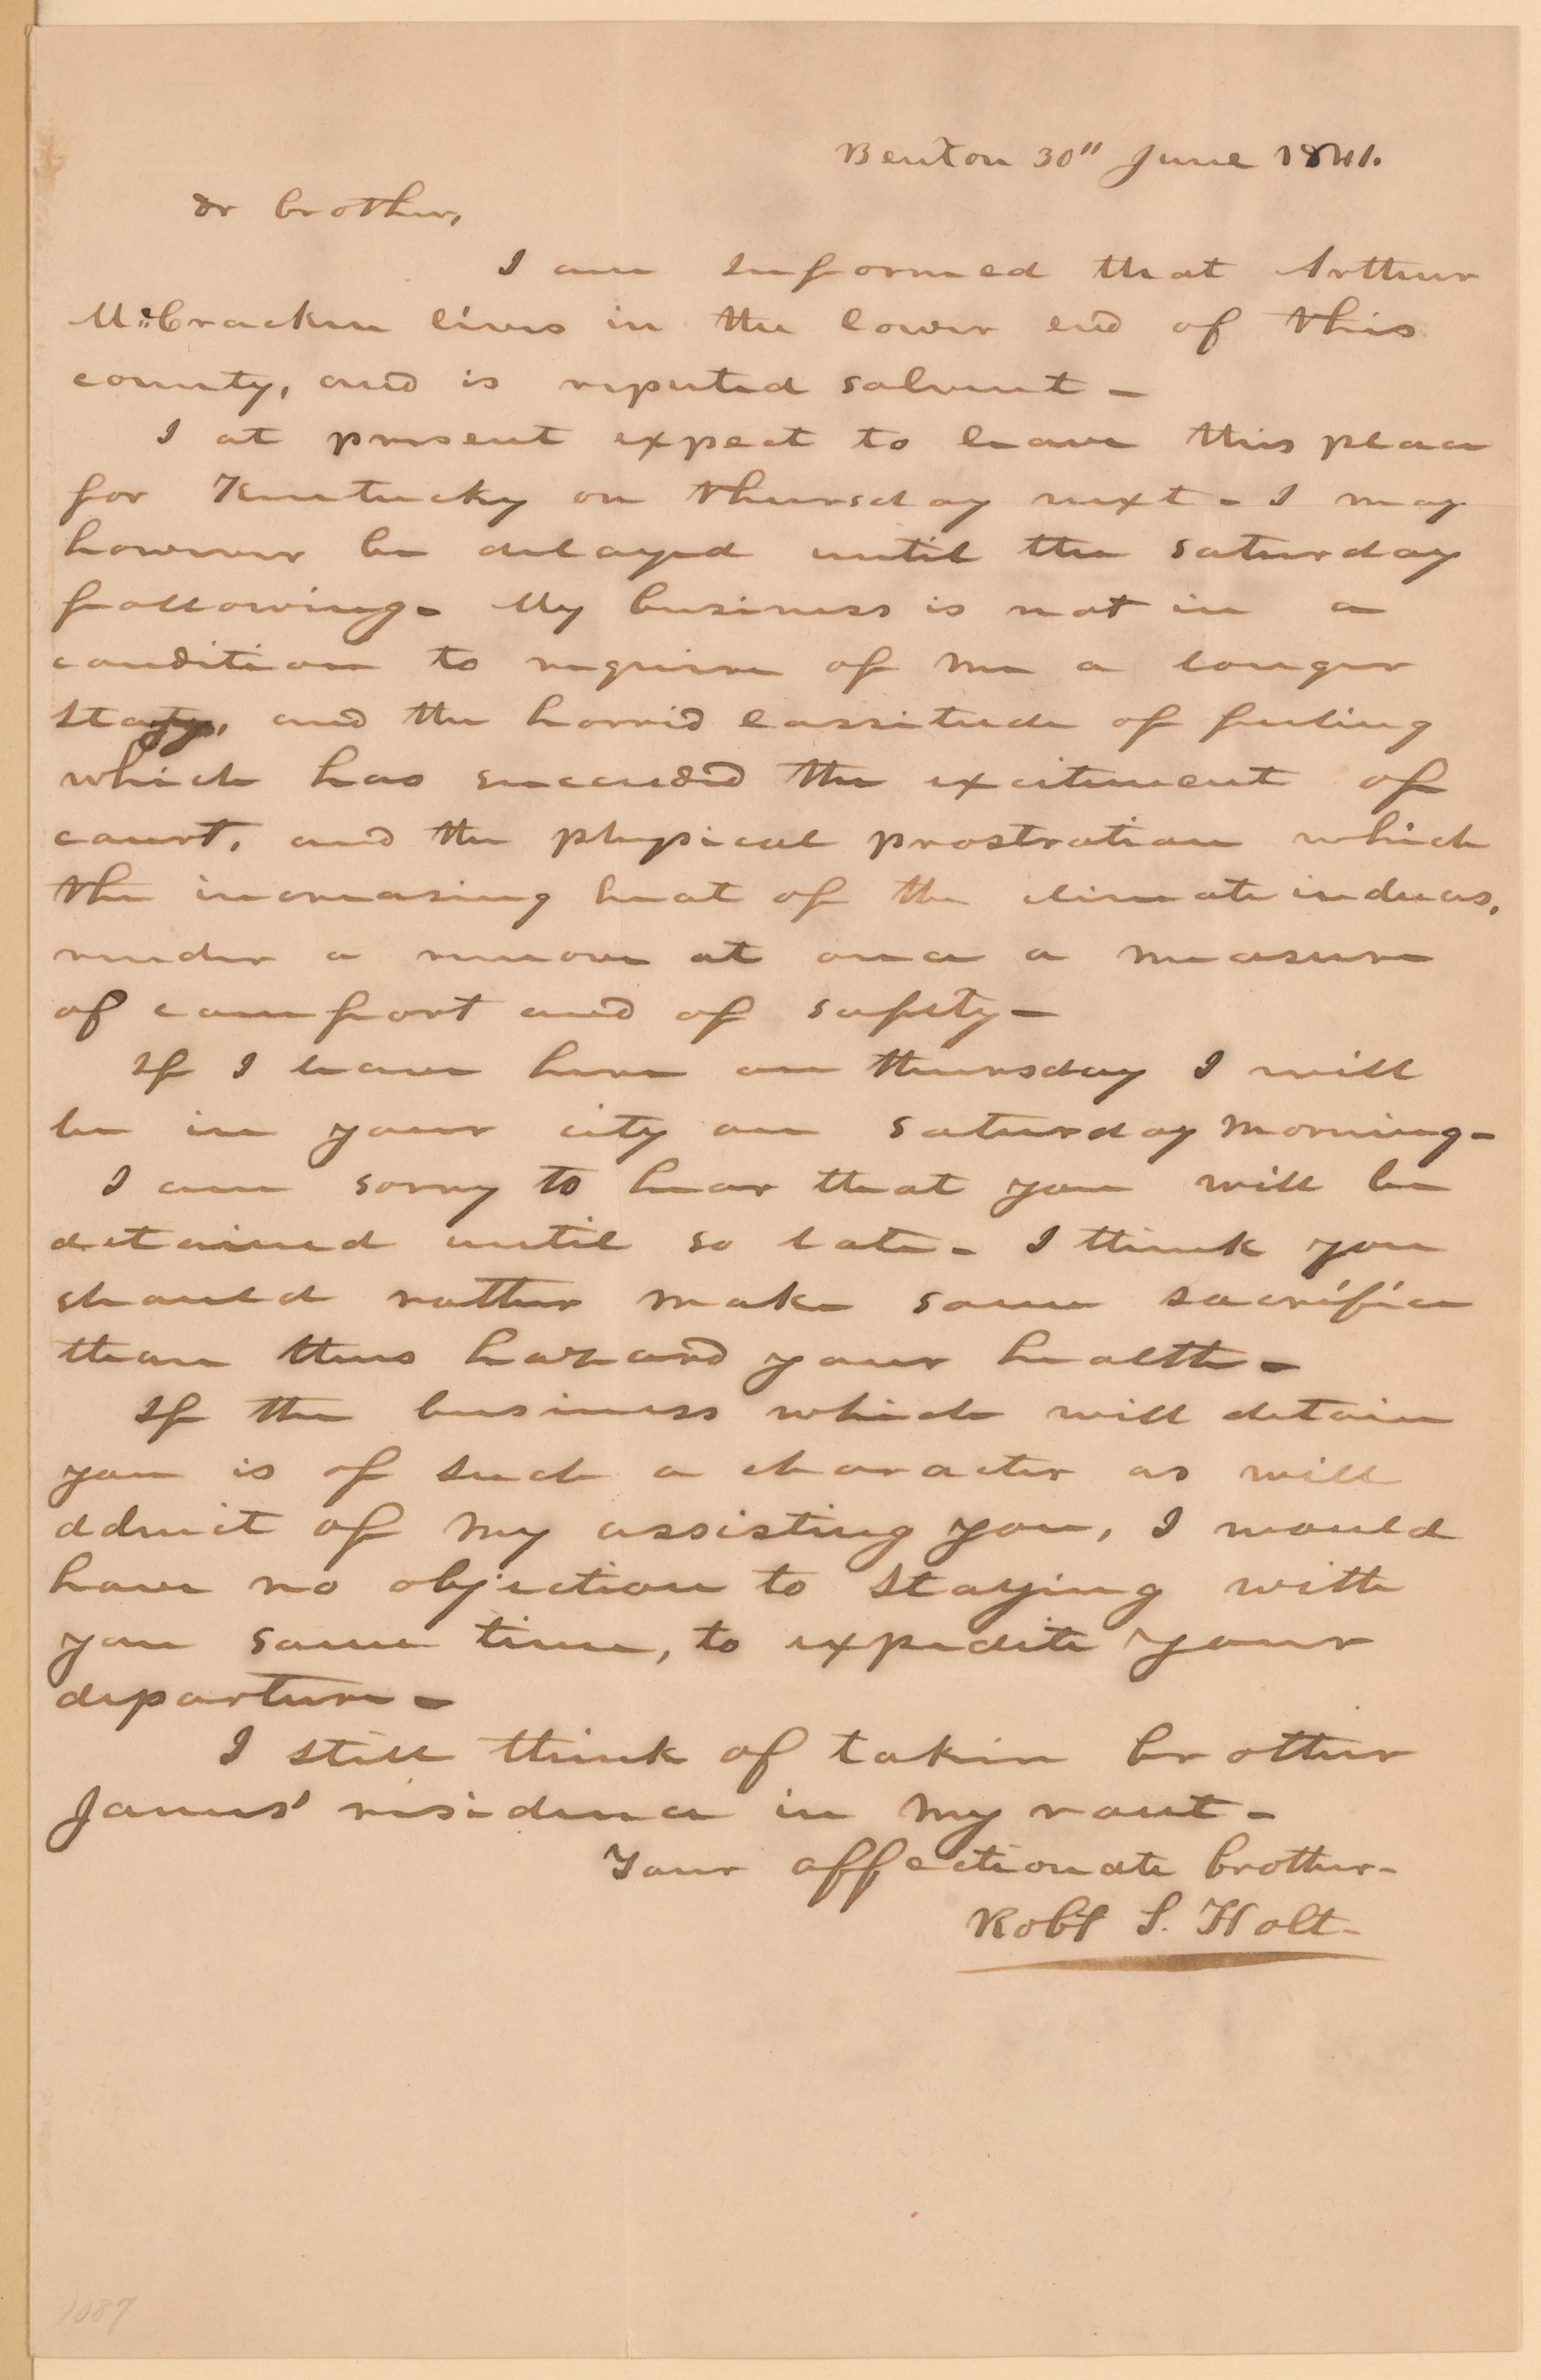 Benton 30" June 1841.
Dr brother,
I am informed that Arthur
McCracken lives in the lower end of this
county, and is reputed solvent -
I at present expect to leave this place
for Kentucky on thursday next - I may
however be delayed until the saturday
following - My business is not in a
condition to require of me a longer
stay, and the horrid lassitude of feeling
which has succeeded the excitement of
court, and the physical prostration which
the increasing heat of the climate induces,
render a remove at once a measure
of comfort and of safety -
If I leave here on thursday I will
be in your city on saturday morning -
I am sorry to hear that you will be
detained until so late - I think you
should rather make some sacrifice
than thus hazard your health -
If the business which will detain
you is of such a character as will
admit of my assisting you, I would
have no objection to staying with
you some time, to expedite your
departure -
I still think of takin brother
James' residence in my rout -
Your affectionate brother -
Robt S. Holt -
1087